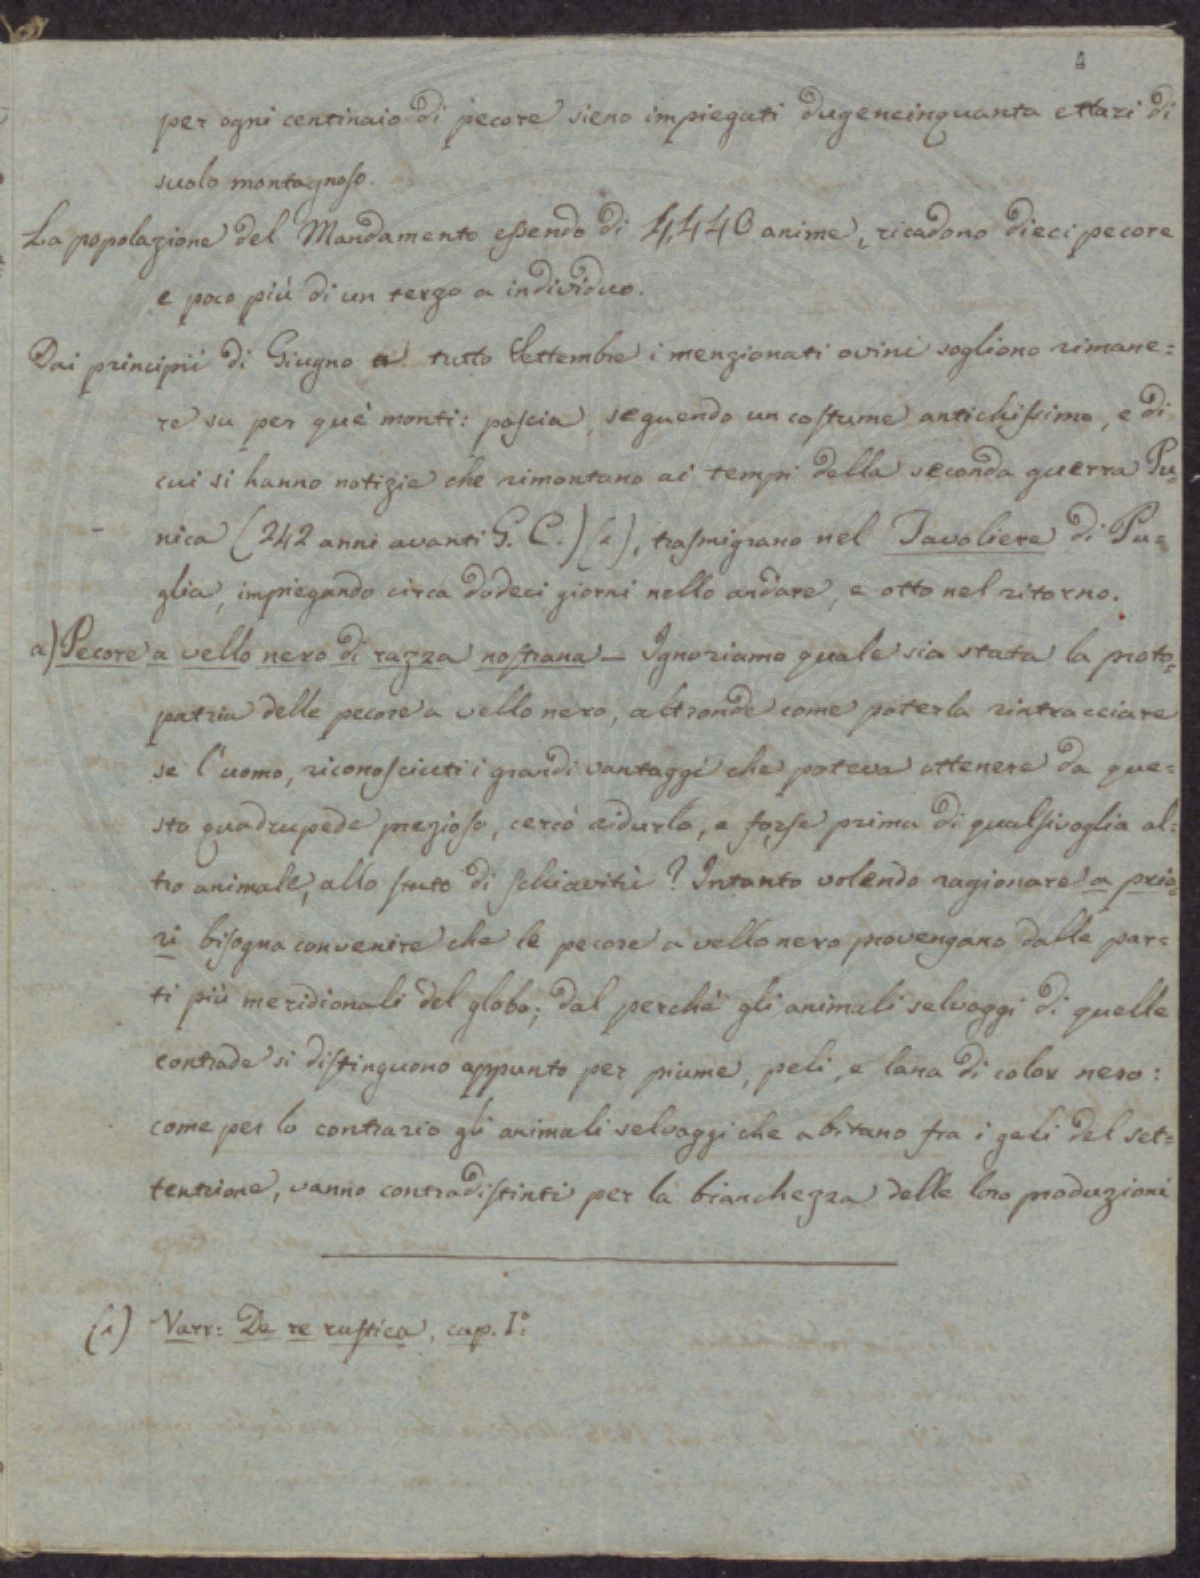 per ogni centinaio di pecore sieno impiegati dugencinquanta ettari di
suolo montagnoso.
La popolazione del Mandamento essendo di 4,440 anime, ricadono dieci pecore
e poco più di un terzo a individuo.
Dai principii di Giugno a tutto Settembre i menzionati ovini sogliono rimane=
re su per què monti: poscia, seguendo un costume antichissimo, e di
cui si hanno notizie che rimontano ai tempi della seconda guerra Pu=
nica (242 anni avanti G. C.) (1), trasmigrano nel Tavoliere di Pu=
glia, impiegando circa dodeci giorni nello andare, e otto nel ritorno.
a) Pecore a vello nero di razza nostrana — Ignoriamo quale sia stata la proto=
patria delle pecore a vello nero, altronde come poterla rintracciare
se l'uomo, riconosciuti i grandi vantaggi che poteva ottenere da que=
sto quadrupede prezioso, cercò ridurlo, e forse prima di qualsivoglia al=
tro animale, allo stato di schiavitù? Intanto volendo ragionare a prio=
ri bisogna convenire che le pecore a vello nero provengano dalle par=
ti più meridionali del globo; dal perchè gli animali selvaggi di quelle
contrade si distinguono appunto per piume, peli, e lana di color nero:
come per lo contrario gli animali selvaggi che abitano fra i geli del set=
tentrione, vanno contradistinti per la bianchezza delle loro produzioni
(1) Varr: De re rustica, cap. I°: